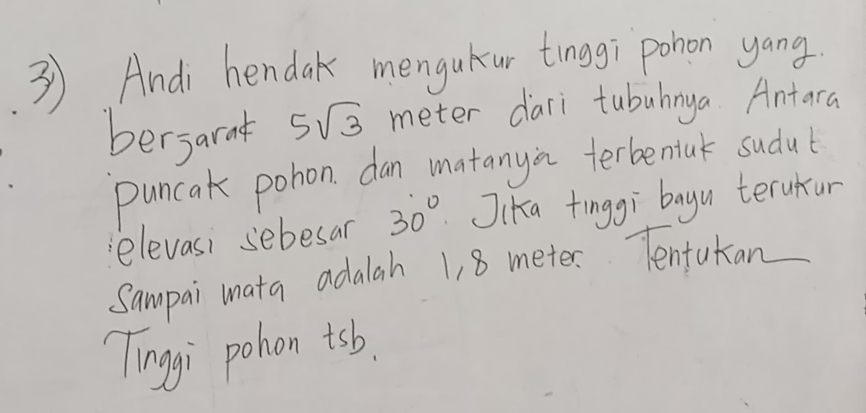 3) Andi hendak mengukur tinggi pohon yang.
berjarak 5√3 meter dari tubuhnya. Antara
puncak pohon. dan matanya terbentuk sudut
elevasi sebesar 30°. Jika tinggi bayu terukur
Sampai mata adalah 1,8 meter. Tentukan
Tinggi pohon tsb.